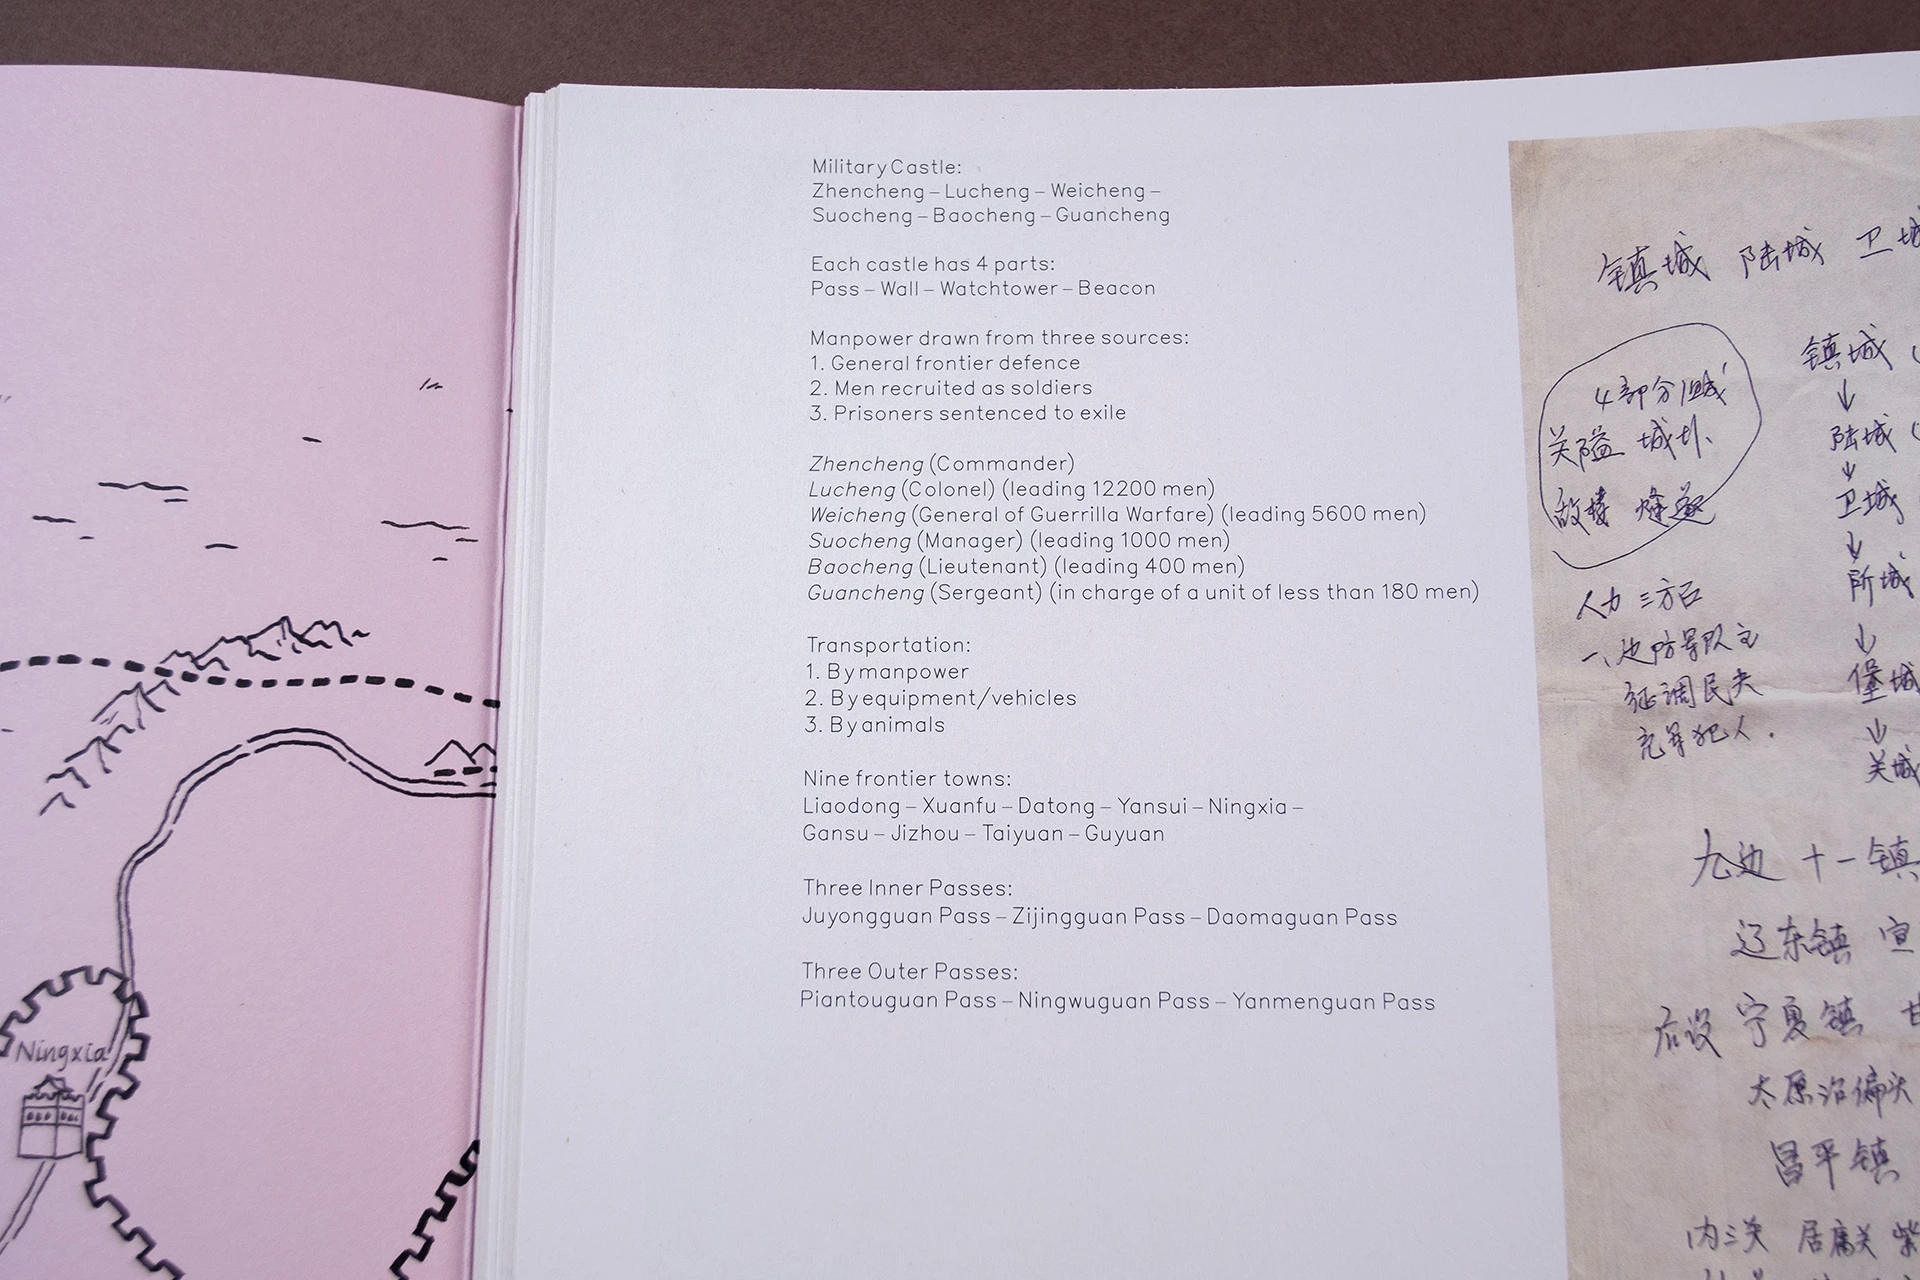 Ningxia
Military Castle:
Zhencheng – Lucheng – Weicheng –
Suocheng – Baocheng – Guancheng
Each castle has 4 parts:
Pass – Wall – Watchtower – Beacon
Manpower drawn from three sources:
1. General frontier defence
2. Men recruited as soldiers
3. Prisoners sentenced to exile
Zhencheng (Commander)
Lucheng (Colonel) (leading 12200 men)
Weicheng (General of Guerrilla Warfare) (leading 5600 men)
Suocheng (Manager) (leading 1000 men)
Baocheng (Lieutenant) (leading 400 men)
Guancheng (Sergeant) (in charge of a unit of less than 180 men)
Transportation:
1. By manpower
2. By equipment/vehicles
3. By animals
Nine frontier towns:
Liaodong – Xuanfu – Datong – Yansui – Ningxia –
Gansu – Jizhou – Taiyuan – Guyuan
Three Inner Passes:
Juyongguan Pass – Zijingguan Pass – Daomaguan Pass
Three Outer Passes:
Piantouguan Pass – Ningwuguan Pass – Yanmenguan Pass
镇城 陆城 卫城
4部分组成
关隘 城
敌楼 烽
人力 三方
一、边防军队
征调民夫
充军犯人.
镇城
↓
陆城
↓
卫城
↓
所城
↓
堡城
↓
关城
九边 十一镇
辽东镇 宣
后设 宁夏镇 甘
太原 偏头
昌平镇
内三关 居庸关 紫